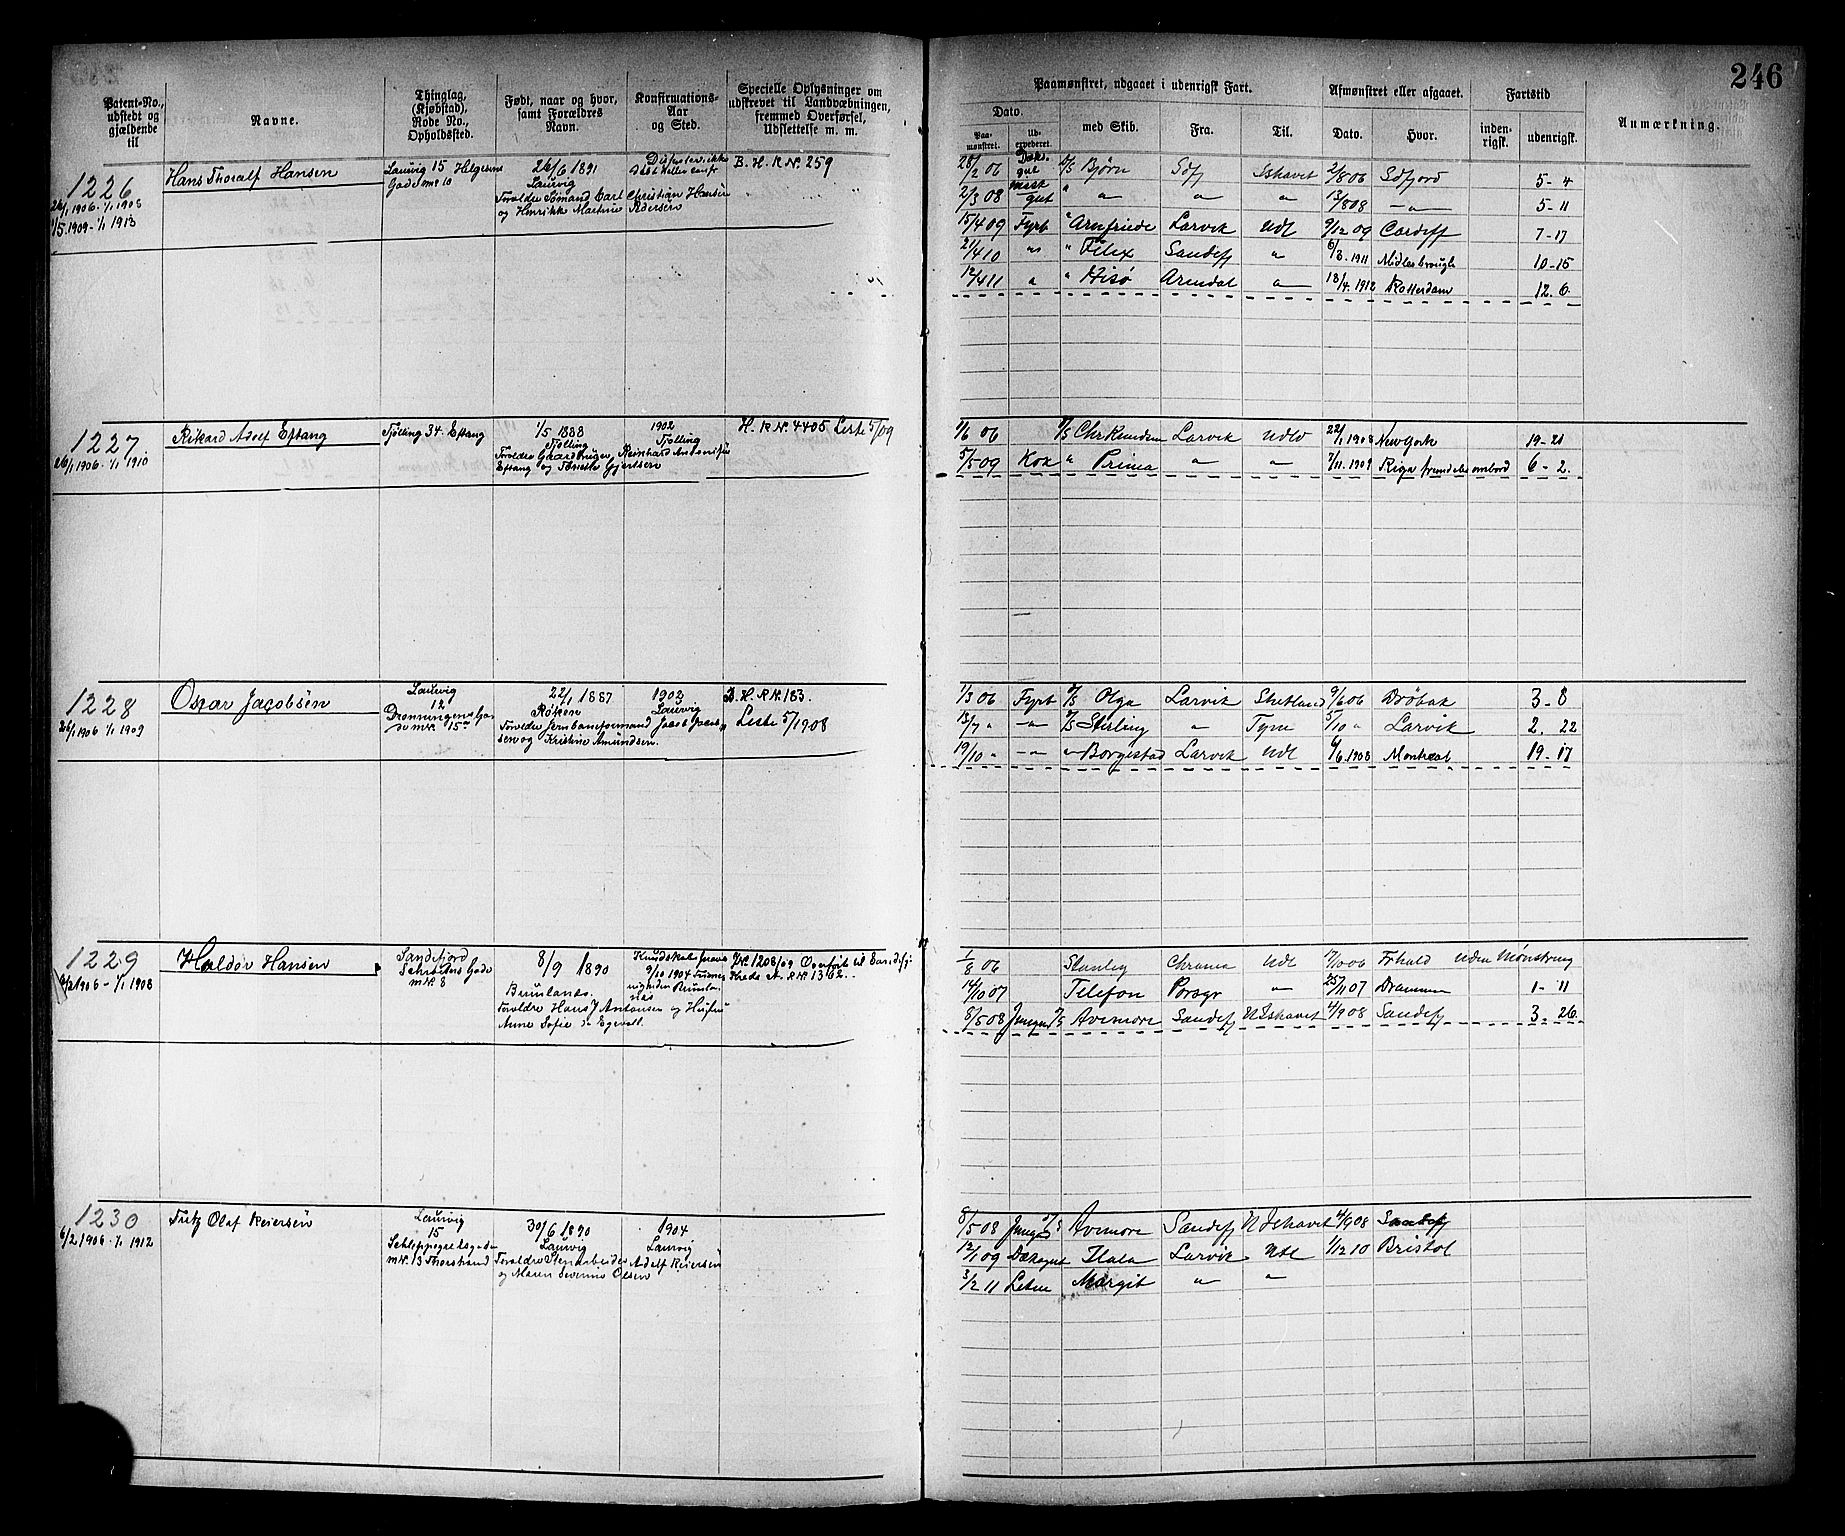 246
Patent-No., udstedt og gjældende til
Navne.
Thinglag, (Kjøbstad), Rode No., Opholdssted.
Født, naar og hvor, samt Forældres Navn.
Konfirmations-Aar og Sted.
Specielle Oplysninger om udskrevet til Landvæbningen, fremmed Overførsel, Udslettelse m. m.
Paamønstret, udgaaet i udenrigsk Fart.
Dato.
Paamønstret.
Udexpederet
med Skib.
Fra.
Til.
Afmønstret eller afgaaet.
Dato.
Hvor.
Fartstid
indenrigsk.
udenrigsk.
Anmærkning.
1226
26/1 1906 - 1/1 1908
1/5 1909 - 1/1 1913
Hans Thoralf Hansen
Laurvig 15 Helgesens Gade mr 10
26/6 1891
Laurvig
Forældre Sømand Carl Christian Hansen
og Henrikke Martine Pedersen
B. H. R N. 259
28/2 06 Dæks gut D/S Bjørn Sdfj Ishavet 2/8 06 Sdfjord 5-4
2/3 08 mask gut " " " " 13/8 08 " 5-11
15/4 09 Fyrb " Arnfriede Larvik Udl 9/12 09 Cardiff 7-17
21/4 10 " " Felix Sandefj " 6/3. 1911 Midlesbrough 10-15
12/4 11 " " Hisø Arendal " 18/4. 1912 Rotterdam 12. 6
1227
26/1 1906 - 1/1 1910
Rikard Adolf Eftang
Tjølling 34. Eftang
1/5 1888
Tjølling
Forældre Gaardbruger Reinhard Antonisen
Eftang og Gjertsen
1902
Tjølling
H. R N. 4405 Leste 5/09
1/6 06 D/S Chr Knudsen Larvik Udlo 22/1 1908 New York 19-21
5/5 09 Kok " Prima " " 7/11. 1909 Riga ombord 6-2.
1228
26/1 1906 1/1 1909
Oscar Jacobsen
Laurvig
12
Dronningens Gade mr. 15a
22/1 1887
Røken
Forældre Jernbaneformand Jacob
sen og Kristine Amundsen.
1902
Laurvig
B. H. R N. 183.
Leste 5/1908
1/3 06 Fyrb D/S Olga Larvik Shetland 9/6 06 Drøbak 3-8
13/7 " " D/S Sterling " Tyne 5/10 " Larvik 2. 22
19/10 " " " Borgestad Larvik Udl 4/6. 1908 Montreal 19-17
1229
1906 - 1/1 1908
Haldor Hansen
Sandefjord
Schrøders Gade
mr. 8
8/9 1890
Brunlanæs.
Forældre Hans J Antonsen og Hustru
Anne Sofie
9/10 1904
JN. 1208/09 Overført til Sandefj
Kreds A. R N. 1362.
1/8 06 Stanley Chrania Udl 7/10 06 Frhald uden Mønstring
14/10 07 Telefon Porsgr " 25/11 07 Drammen 1-11
8/5 08 Jungm D/S Avemore Sandefj N Ishavet 4/9 08 Sandefj 3. 26
1230
6/2 1906 - 1/1 1912
Fritz Olaf Reiersen
Laurvig
15
Schleppegrellsgade
mr. 13 Thorstrand
30/6 1890
Laurvig
Forældre Stenarbeider Adolf Reiersen
og Maren Severine Olsen
1904
Laurvig
8/5 08 Jungm D/S Avemore Sandefj N Ishavet 4/9 08 Sandefj
12/1 09 Dæksgut Ilala Larvik Udl 1/12 10 Bristol
3/2 11 Letm Margit " "